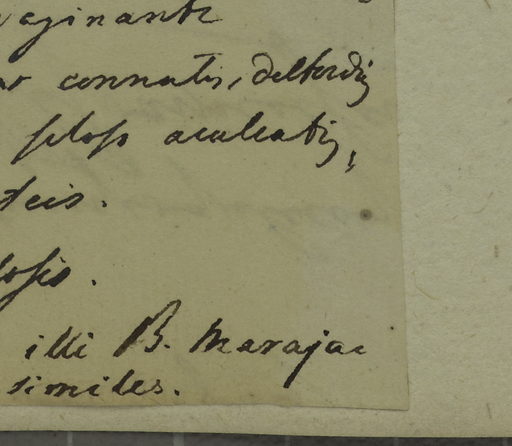 vaginante
connatis, deltoidis
setosis aculeatis,
teis.
losis.
illi B. Marajae
similes.